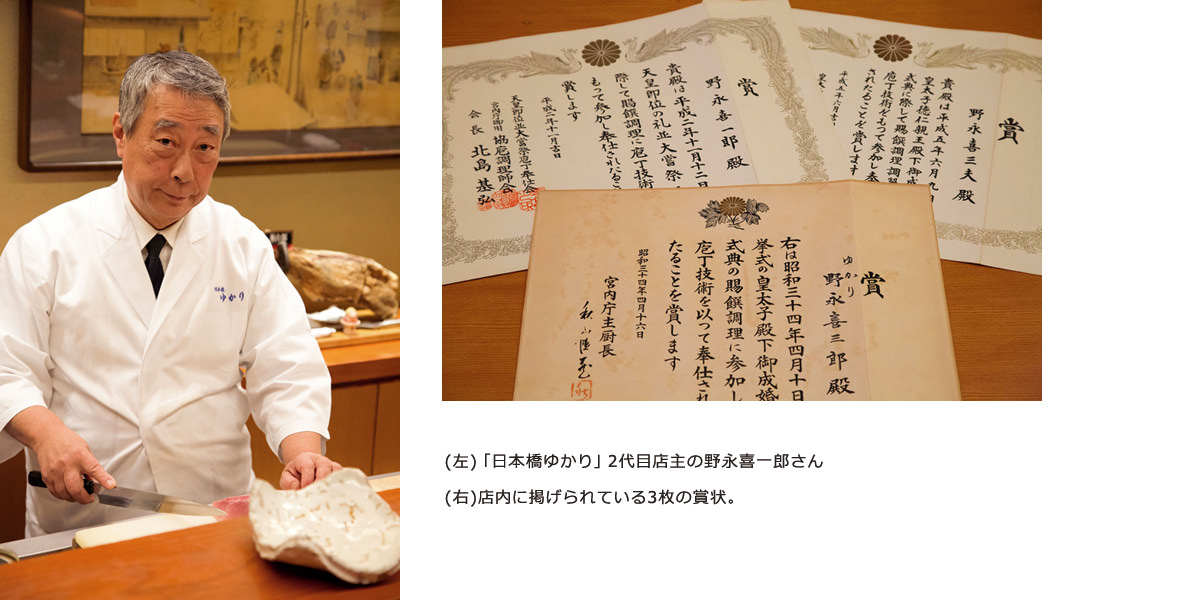 日本橋
ゆかり
賞
野永喜一郎殿
貴殿は平成二年十一月十二日
天皇即位の礼並大嘗祭
際して賜饌調理に庖丁技術
もって参加し奉仕されたるこ
賞します
平成二年十一月吉日
天皇即位並大嘗祭庖丁奉仕会
宮内庁御用 協庖調理師会
会長 北島基弘
賞
野永喜三夫殿
貴殿は平成五年六月九日
皇太子徳仁親王殿下御成
式典に際して賜饌調理調
庖丁技術をもって参加し奉
されたることを賞します
平成五年六月吉
賞
ゆかり
野永喜三郎殿
右は昭和三十四年四月十日
挙式の皇太子殿下御成婚
式典の賜饌調理に参加し
庖丁技術を以って奉仕され
たることを賞します
昭和三十四年四月十六日
宮内庁主厨長
(左)「日本橋ゆかり」2代目店主の野永喜一郎さん
(右)店内に掲げられている3枚の賞状。